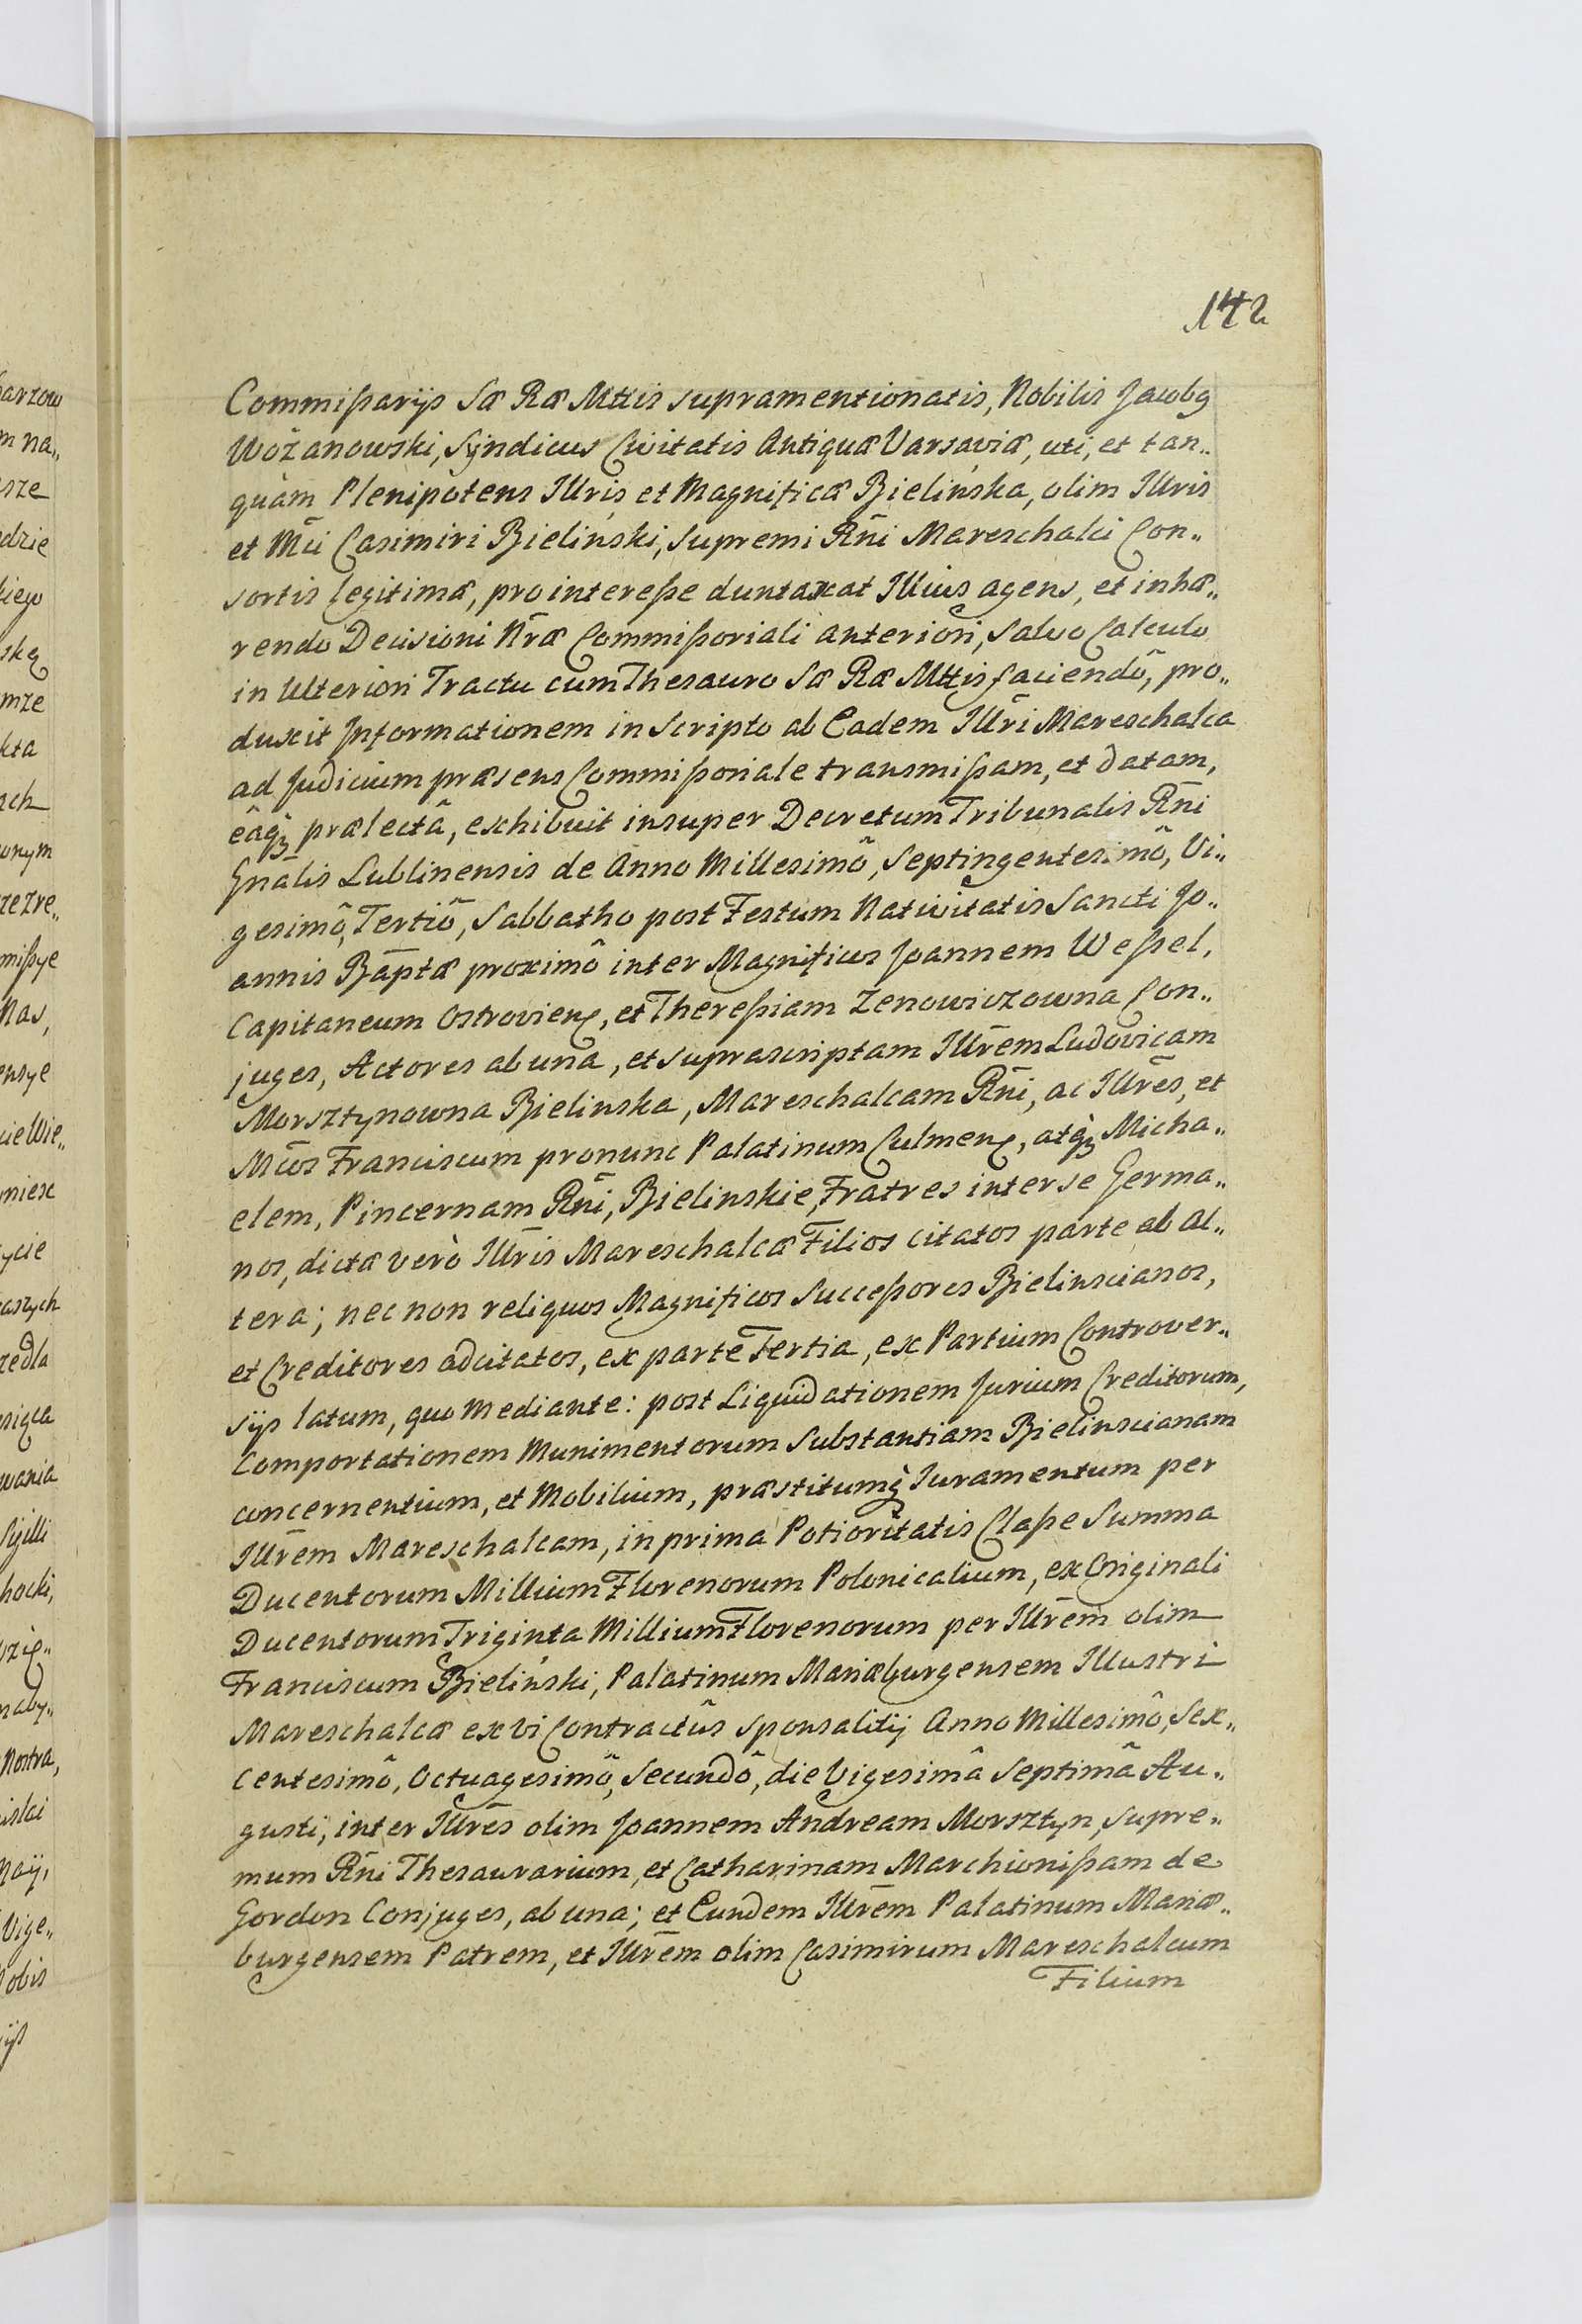 142
Commißarijs Sæ Ræ Mttis supramentionatis, Nobilis Jacobg
Wożanowski, Syndicus Civitatis Antiquæ Varsaviæ, uti, et tan„
quàm Plenipotens Illris et Magnificæ Bielińska, olim Illris
et Mci Casimiri Bieliński, Supremi Rñi Mareschalci Con„
sortis legitimæ, pro intereße duntaxat Illius agens, et inhæ„
rendo Decisioni Nræ Commißoriali anteriori, Salvo Calculo
in Ulteriori Tractu cum Thesauro Sæ Ræ Mttis faciendô, pro„
duxit Informationem in Scripto ab Eadem Illri Mareschalca
ad Judicium præsens Commißoriale transmißam, et datam,
eâq̀ꝫ prælectâ, exhibuit insuper Decretum Tribunalis Rñi
Gnãlis Lublinensis de Anno Millesimô, Septingentesimô, Vi„
gesimô, Tertiô, Sabbatho post Festum Nativitatis Sancti Jo„
annis Bãptæ proximô inter Magnificos Joannem Weßel,
Capitaneum Ostrovieñ, et Thereßiam Zenowiczowna Con„
juges, Actores ab una, et suprascriptam Illrẽm Ludovicam
Morsztynowna Bielinska, Mareschalcam Rñi, ac Illrẽs, et
Mc̃os Franciscum pronunc Palatinum Culmeñ, atq̀ꝫ Micha„
elem, Pincernam Rñi, Bielinskie, Fratres inter se Germa„
nos, dictæ verò Illris Mareschalcæ Filios citatos parte ab al„
tera; nec non reliquos Magnificos Succeßores Bielinscianos,
et Creditores adcitatos, ex parte Tertia, ex Partium Controver„
sijs latum, quo mediante: post Liquidationem Jurium Creditorum,
Comportationem Munimentorum Substantiam Bielinscianam
concernentium, et Mobilium, præstitumq̀ Juramentum per
Illrẽm Mareschalcam, in prima Potioritatis Claße Summa
Ducentorum Millium Florenorum Polonicalium, ex Originali
Ducentorum Triginta Millium Florenorum per Illrẽm olim
Franciscum Bieliński, Palatinum Mariæburgensem Illustri
Mareschalcæ ex vi Contractûs Sponsalitij Anno Millesimô, Sex„
centesimô, Octuagesimô, Secundô, die Vigesimâ Septimâ Au„
gusti, inter Illrẽs olim Joannem Andream Morsztyn, Supre„
mum Rñi Thesaurarium, et Catharinam Marchionißam de
Gordon Conjuges, ab una; et Eundem Illrẽm Palatinum Mariæ„
burgensem Patrem, et Illrẽm olim Casimirum Mareschalcum
Filium